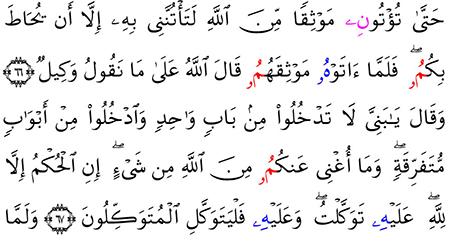 حَتَّىٰ تُؤْتُونِۦ مَوْثِقًا مِّنَ ٱللَّهِ لَتَأْتُنَّنِى بِهِۦٓ إِلَّآ أَن يُحَاطَ
بِكُمُۥ ۖ فَلَمَّآ ءَاتَوْهُۥ مَوْثِقَهُمُۥ قَالَ ٱللَّهُ عَلَىٰ مَا نَقُولُ وَكِيلٌ ٦٦
وَقَالَ يَـٰبَنِىَّ لَا تَدْخُلُوا۟ مِنۢ بَابٍ وَٰحِدٍ وَٱدْخُلُوا۟ مِنْ أَبْوَٰبٍ
مُّتَفَرِّقَةٍ ۖ وَمَآ أُغْنِى عَنكُمُۥ مِنَ ٱللَّهِ مِن شَىْءٍ ۖ إِنِ ٱلْحُكْمُ إِلَّا
لِلَّهِ ۖ عَلَيْهِۦ تَوَكَّلْتُ ۖ وَعَلَيْهِۦ فَلْيَتَوَكَّلِ ٱلْمُتَوَكِّلُونَ ٦٧ وَلَمَّا